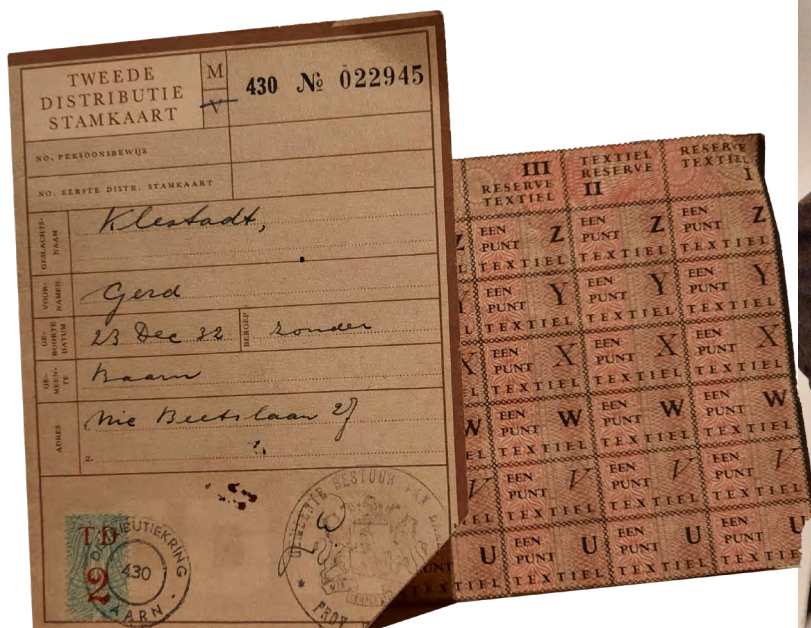 TWEEDE
DISTRIBUTIE
STAMKAART
M
V
430 № 022945
NO. PERSOONSBEWIJS
NO. EERSTE DISTR. STAMKAART
GESLACHTS-
NAAM
Klestadt,
VOOR-
NAMEN
Gerd
GE-
BOORTE
DATUM
23 Dec 32
BEROEP
zonder
GE-
MEEN-
TE
Baarn
ADRES
1. Nic Beetslaan 27
2.
TD
2
DISTRIBUTIEKRING
430
BAARN
GEMEENTE BESTUUR VAN
PROV
III
RESERVE
TEXTIEL
TEXTIEL
RESERVE
II
RESERVE
TEXTIEL
I
Z EEN PUNT Z EEN PUNT Z EEN PUNT Z
TEXTIEL TEXTIEL TEXTIEL
Y EEN PUNT Y EEN PUNT Y EEN PUNT Y
TEXTIEL TEXTIEL TEXTIEL
X EEN PUNT X EEN PUNT X EEN PUNT X
TEXTIEL TEXTIEL TEXTIEL
W EEN PUNT W EEN PUNT W EEN PUNT W
TEXTIEL TEXTIEL TEXTIEL
V EEN PUNT V EEN PUNT V EEN PUNT V
TEXTIEL TEXTIEL TEXTIEL
U EEN PUNT U EEN PUNT U EEN PUNT U
TEXTIEL TEXTIEL TEXTIEL